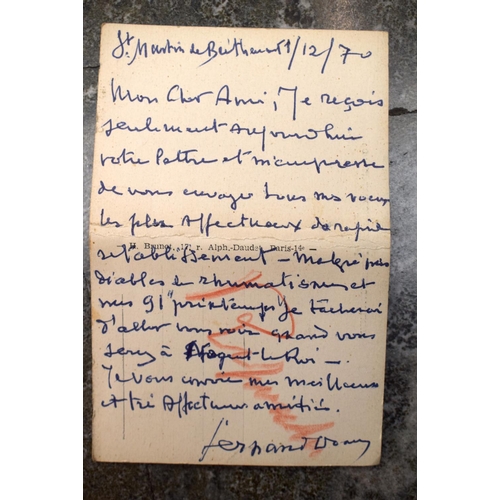 St Martin de Bréthencourt 1/12/70
Mon Cher Ami, Je reçois
seulement aujourd'hui
votre lettre et m'empresse
de vous envoyer tous mes vœux
les plus affectueux de rapide
H. Brunet, 17, r. Alph.-Daudet, Paris-14e
rétablissement - Malgré mes
diables de rhumatismes et
mes 91 "printemps" je tacherai
d'aller vous voir quand vous
serez à Nogent-le-Roi -.
Je vous envoie mes meilleures
et très affectueuses amitiés.
Fernand